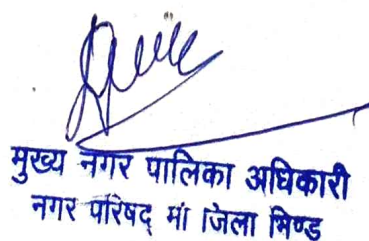 मुख्य नगर पालिका अधिकारी
नगर परिषद् मौ जिला भिण्ड